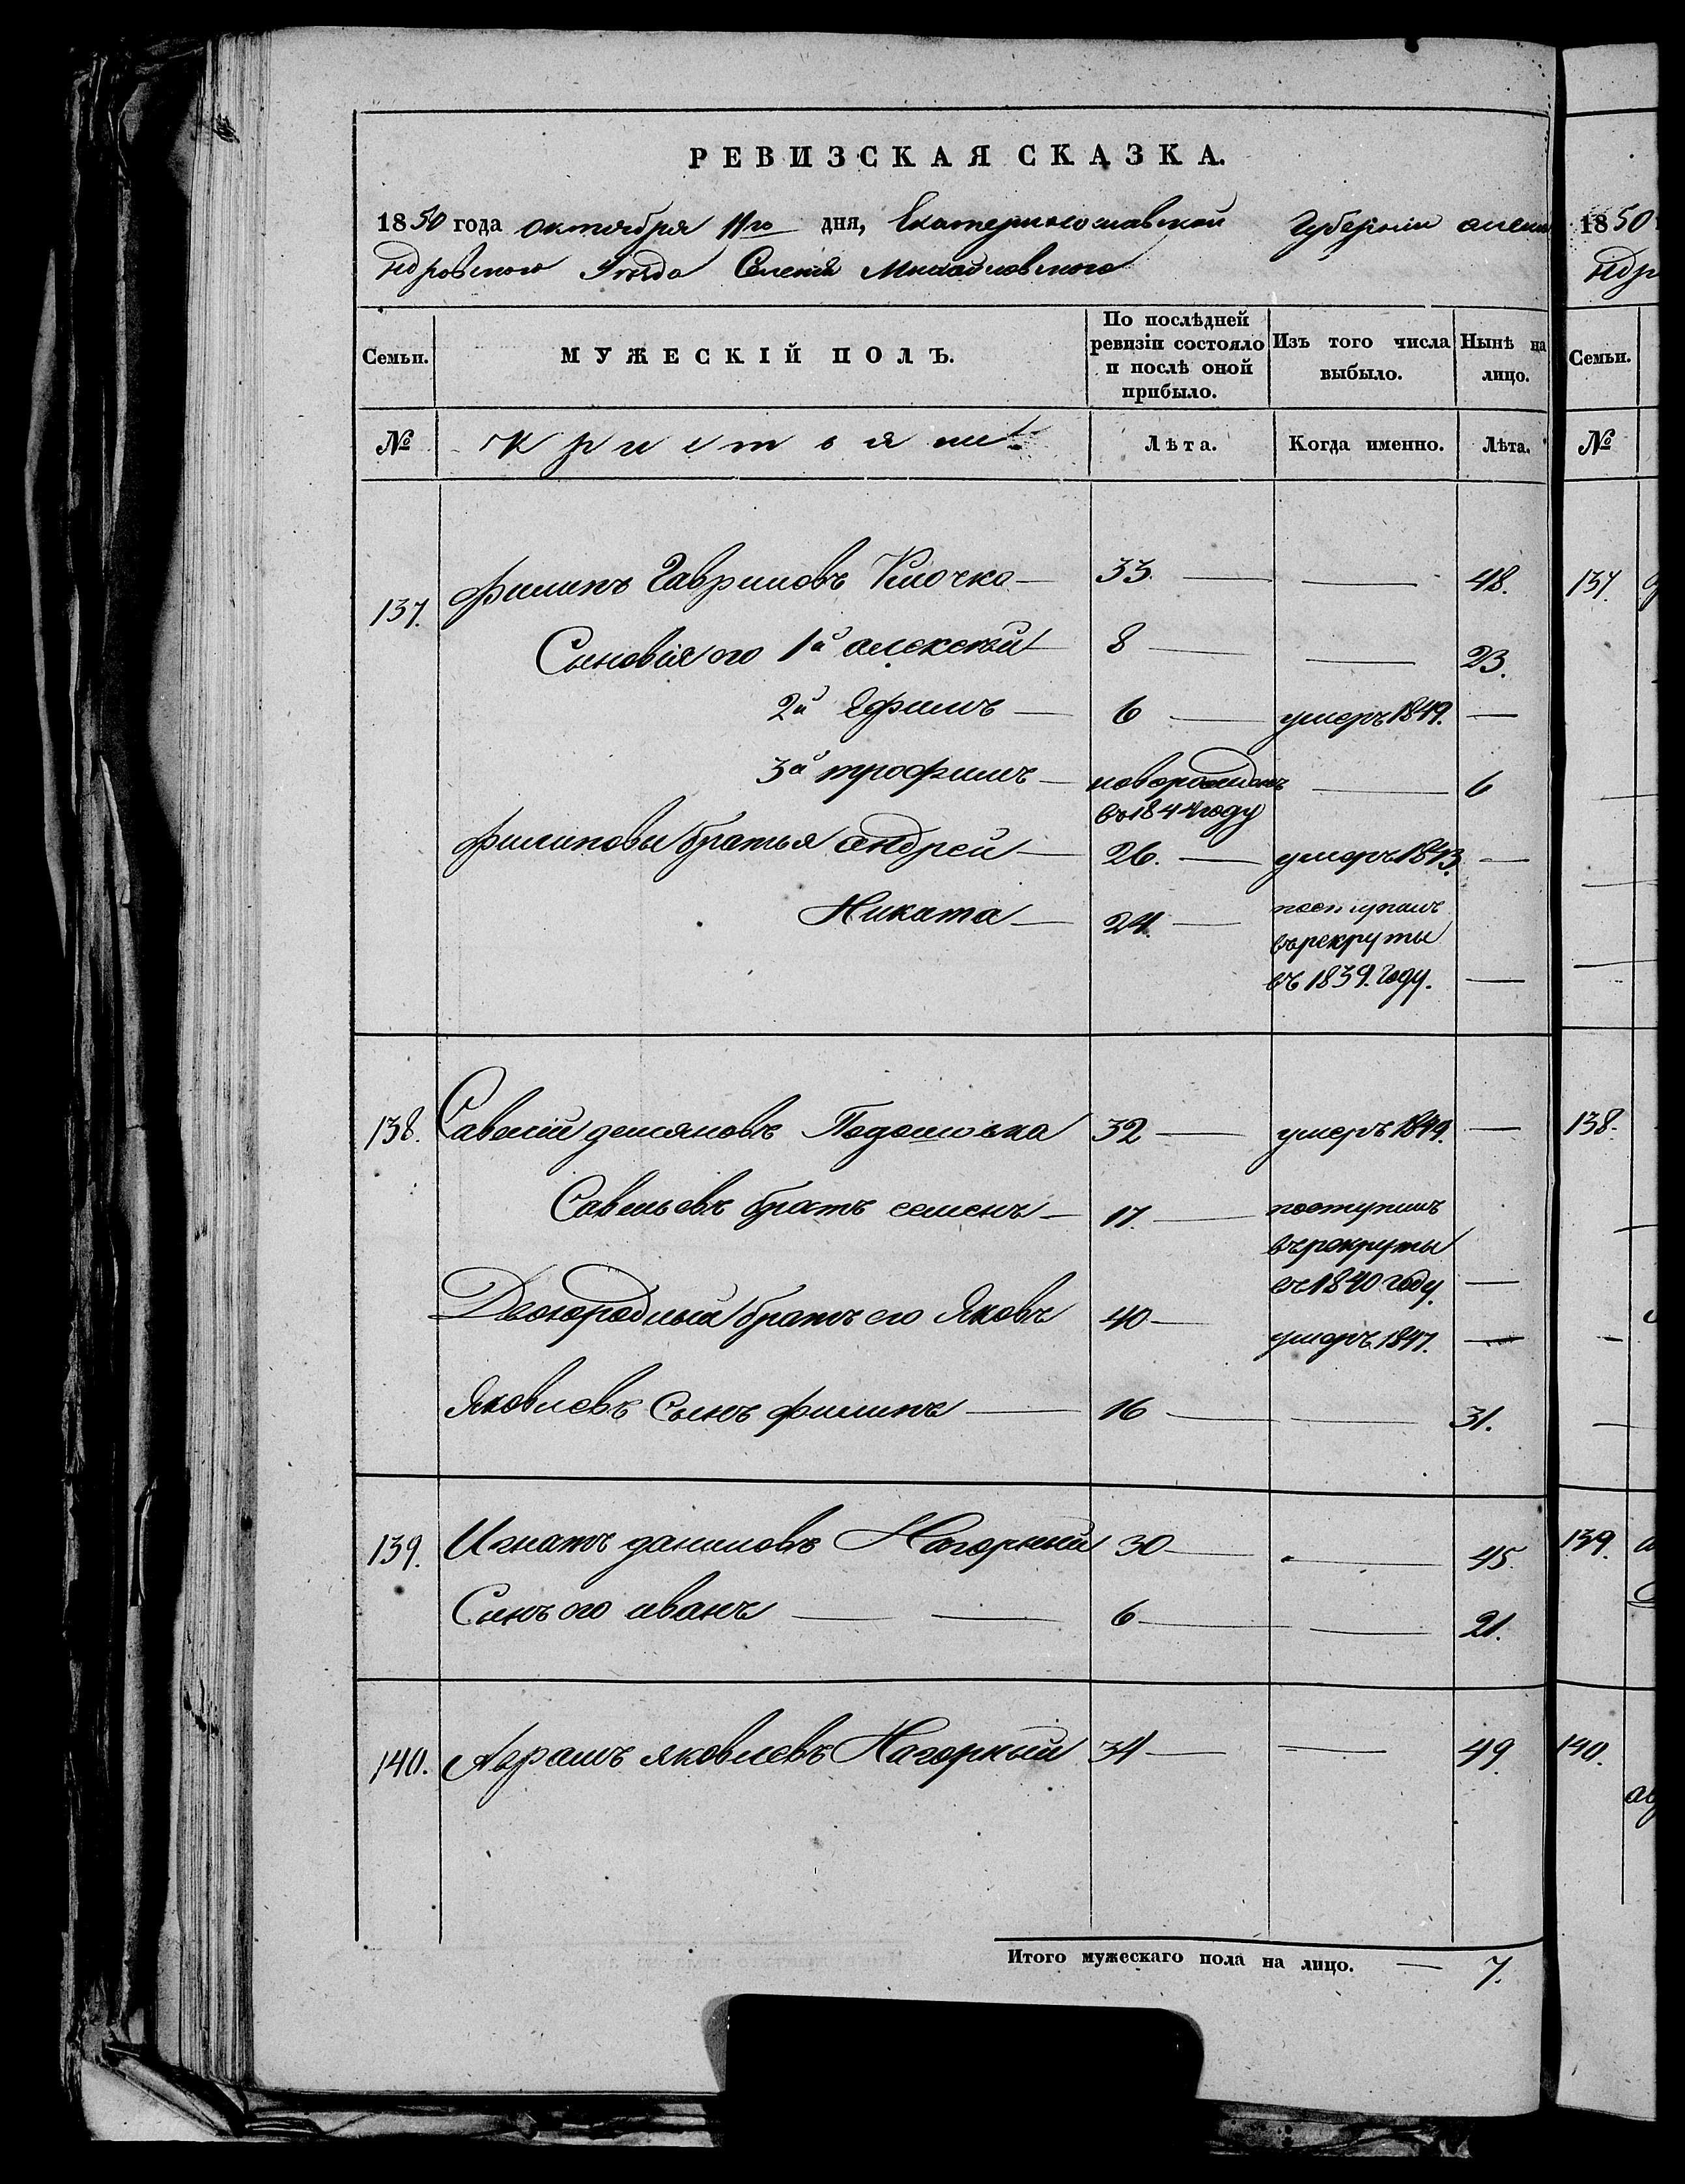 РЕВИЗСКАЯ СКАЗКА.
1850 года октября 11го дня, Екатеринославской Губерніи алекса
ндровского Уѣзда Селенія Михайловского
Семьи. МУЖЕСКІЙ ПОЛЪ. По послѣдней ревизіи состояло и послѣ оной прибыло. Изъ того числа выбыло. Нынѣ на лицо.
№ Крестьяне Лѣта. Когда именно. Лѣта.
137. Филипъ Гавриловъ Клочко 33. 48.
Сыновія его 1й алексѣй 8 23.
2й Ефимъ 6 умеръ 1849.
3й трофимъ новорожденъ 6
въ 1844 году
Филиповы братья андрей 26. умеръ 1843.
Никита 24. поступилъ
въ рекруты
въ 1839. году.
138. Савелій демяновъ 32 умеръ 1849.
Савельевъ братъ семенъ 17. поступилъ
въ рекруты
въ 1840 году.
Двоюродный братъ его Яковъ 40 умеръ 1847.
Яковлевъ Сынъ филипъ 16 31.
139. Игнатъ даниловъ Нагорный 30 45
Сынъ его иванъ 6 21.
140. Аврамъ яковлевъ Нагорный 34 49.
Итого мужескаго пола на лицо. 7.
1850
ндр
Семьи.
№
137.
138.
139.
140.